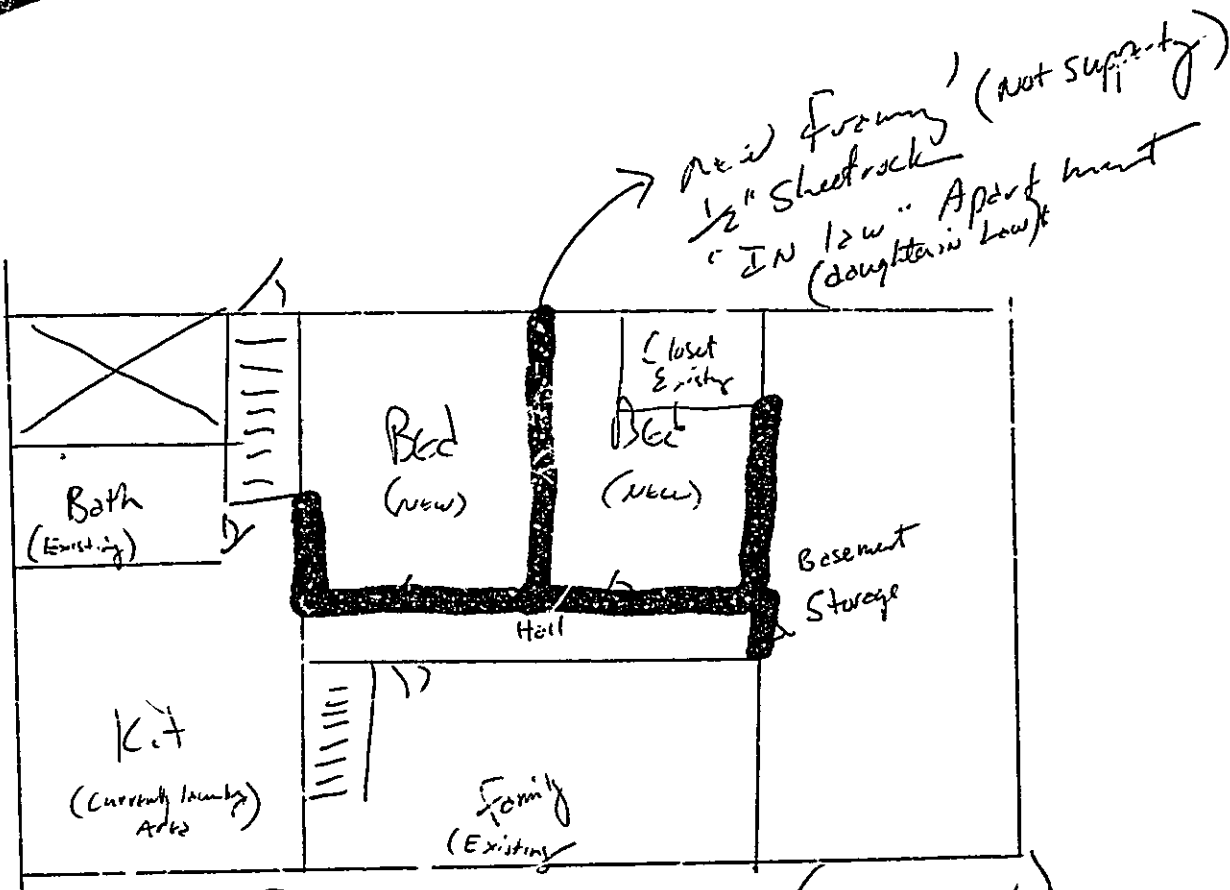 New Framing (Not Supporting)
1/2" Sheetrock
"IN law" Apartment
(daughter in Law)
Closet
Existing
Bed
(NEW)
Bed
(NEW)
Bath
(Existing)
Basement
Storage
Hall
Kit
(Currently laundry
Area)
Family
(Existing